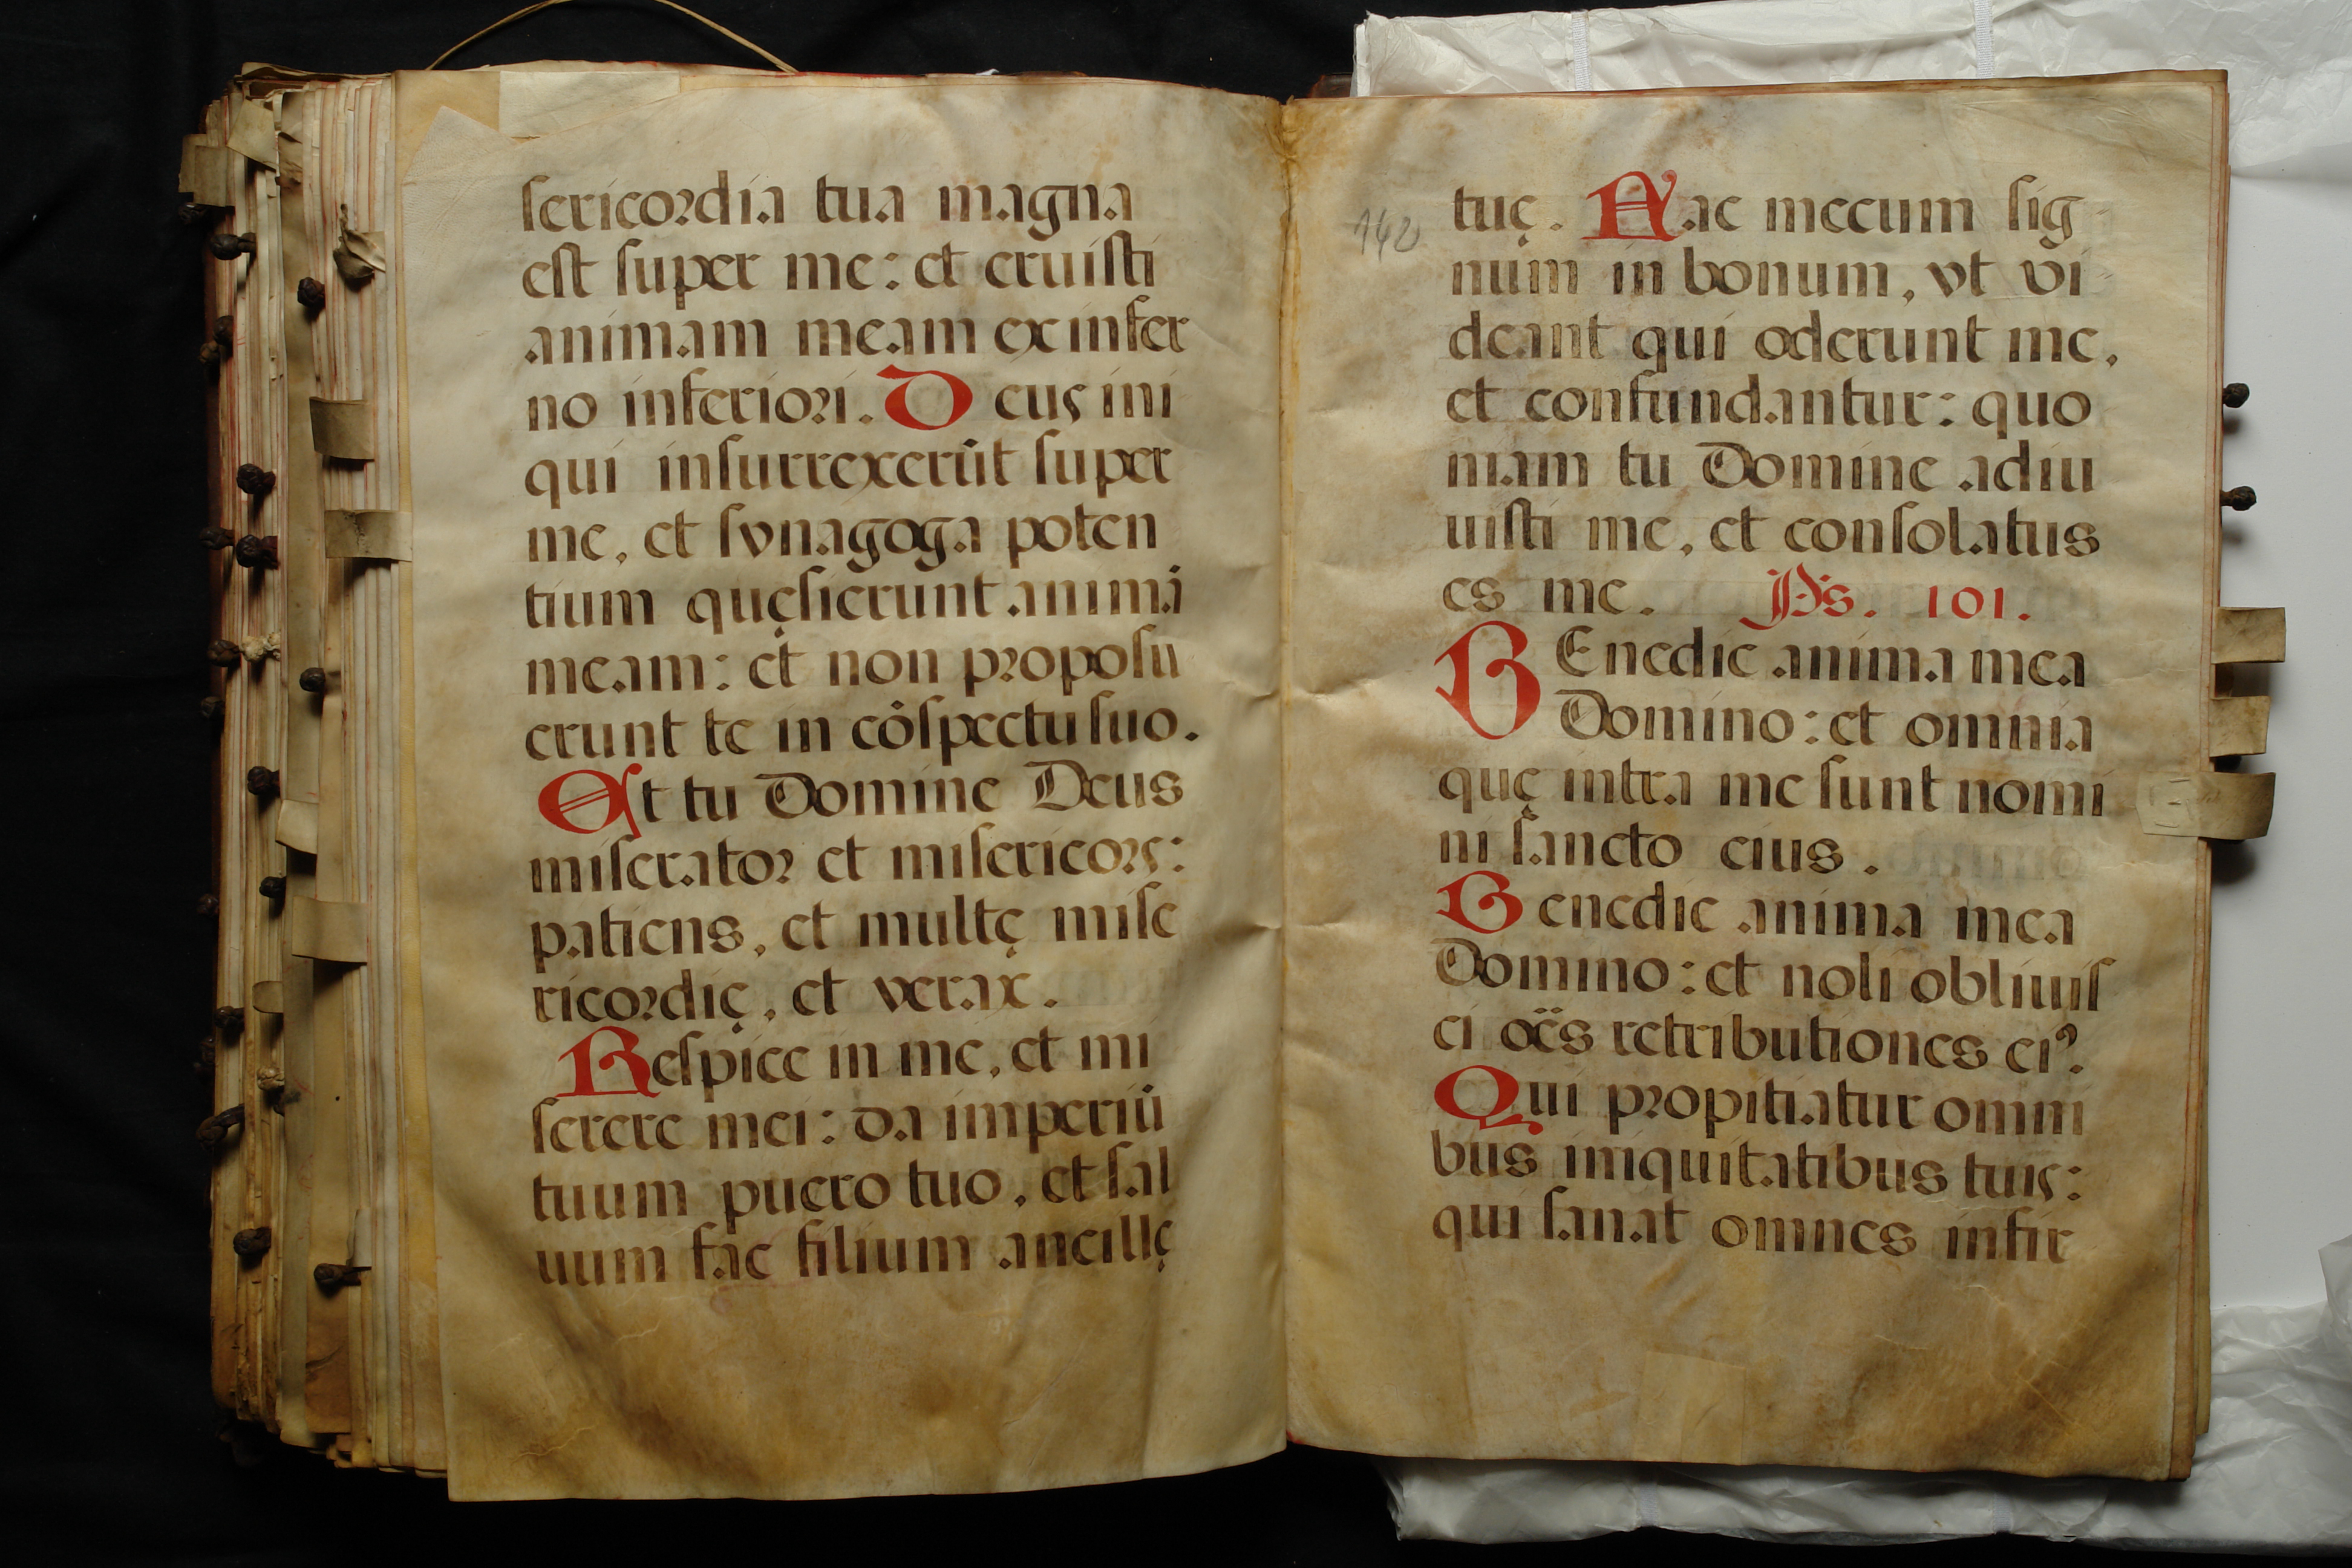 sericordia tua magna
est super me: et eruisti
animam meam ex infer
no inferiori. Deus ini
qui insurrexerũt super
me, et synagoga poten
tium quęsierunt animã
meam: et non proposu
erunt te in cõspectu suo.
Et tu Domine Deus
miserator et misericors:
patiens, et multę mise
ricordię, et verax.
Respice in me, et mi
serere mei: da imperiũ
tuum puero tuo, et sal
uum fac filium ancillę
142
tuę. Fac mecum sig
num in bonum, vt vi
deant qui oderunt me,
et confundantur: quo
niam tu Domine adiu
uisti me, et consolatus
es me. Ps. 101.
BEnedic anima mea
Domino: et omnia
quę intra me sunt nomi
ni sancto eius.
Benedic anima mea
Domino: et noli obliuis
ci oẽs retributiones eiꝰ.
Qui propitiatur omni
bus iniquitatibus tuis:
qui sanat omnes infir